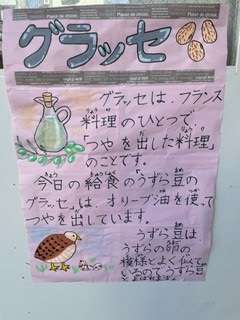 グラッセ
グラッセは、フランス
料理のひとつで
「つやを出した料理」
のことです。
今日の給食のうずら豆の
グラッセは、オリーブ油を使って
つやを出しています。
うずら豆は
うずらの卵の
模様とよく似て
いるのでうずら豆